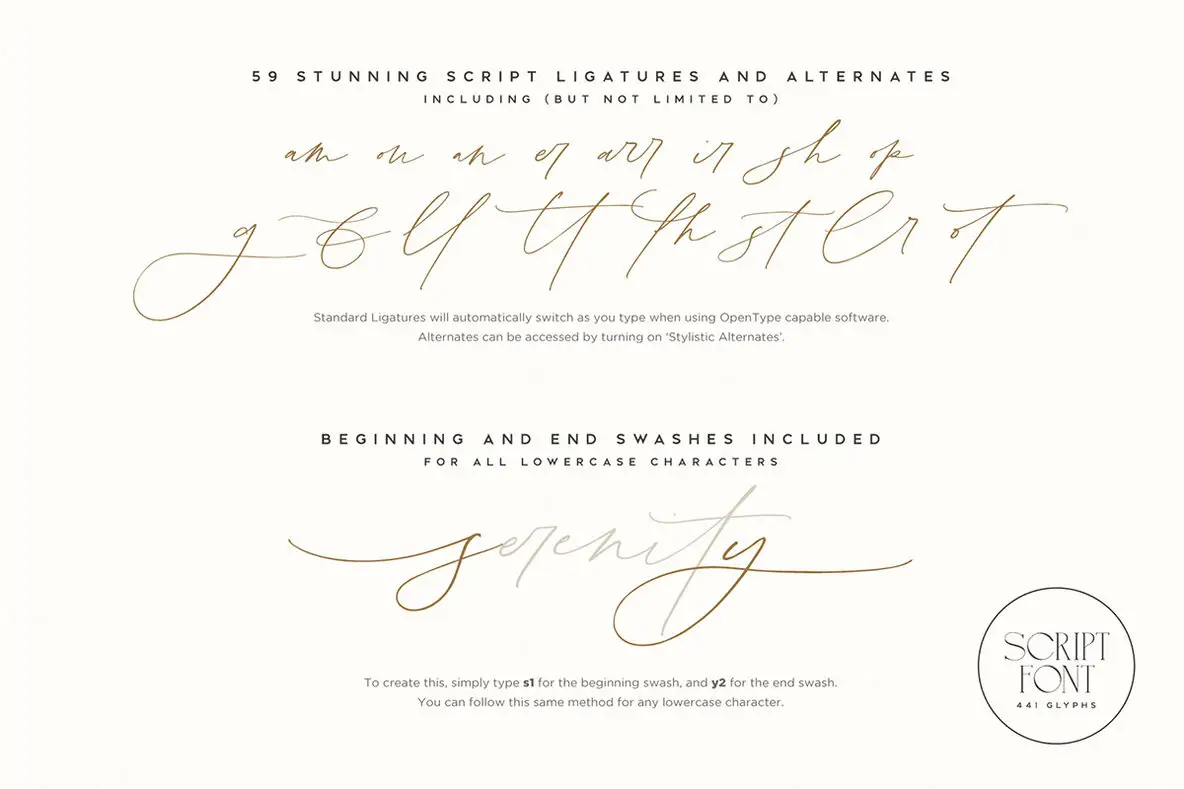 59 STUNNING SCRIPT LIGATURES AND ALTERNATES
INCLUDING (BUT NOT LIMITED TO)
am ou an er arr ir sh op
g ll tt th st r ot
Standard Ligatures will automatically switch as you type when using OpenType capable software.
Alternates can be accessed by turning on ‘Stylistic Alternates’.
BEGINNING AND END SWASHES INCLUDED
FOR ALL LOWERCASE CHARACTERS
serenity
To create this, simply type s1 for the beginning swash, and y2 for the end swash.
You can follow this same method for any lowercase character.
SCRIPT
FONT
441 GLYPHS